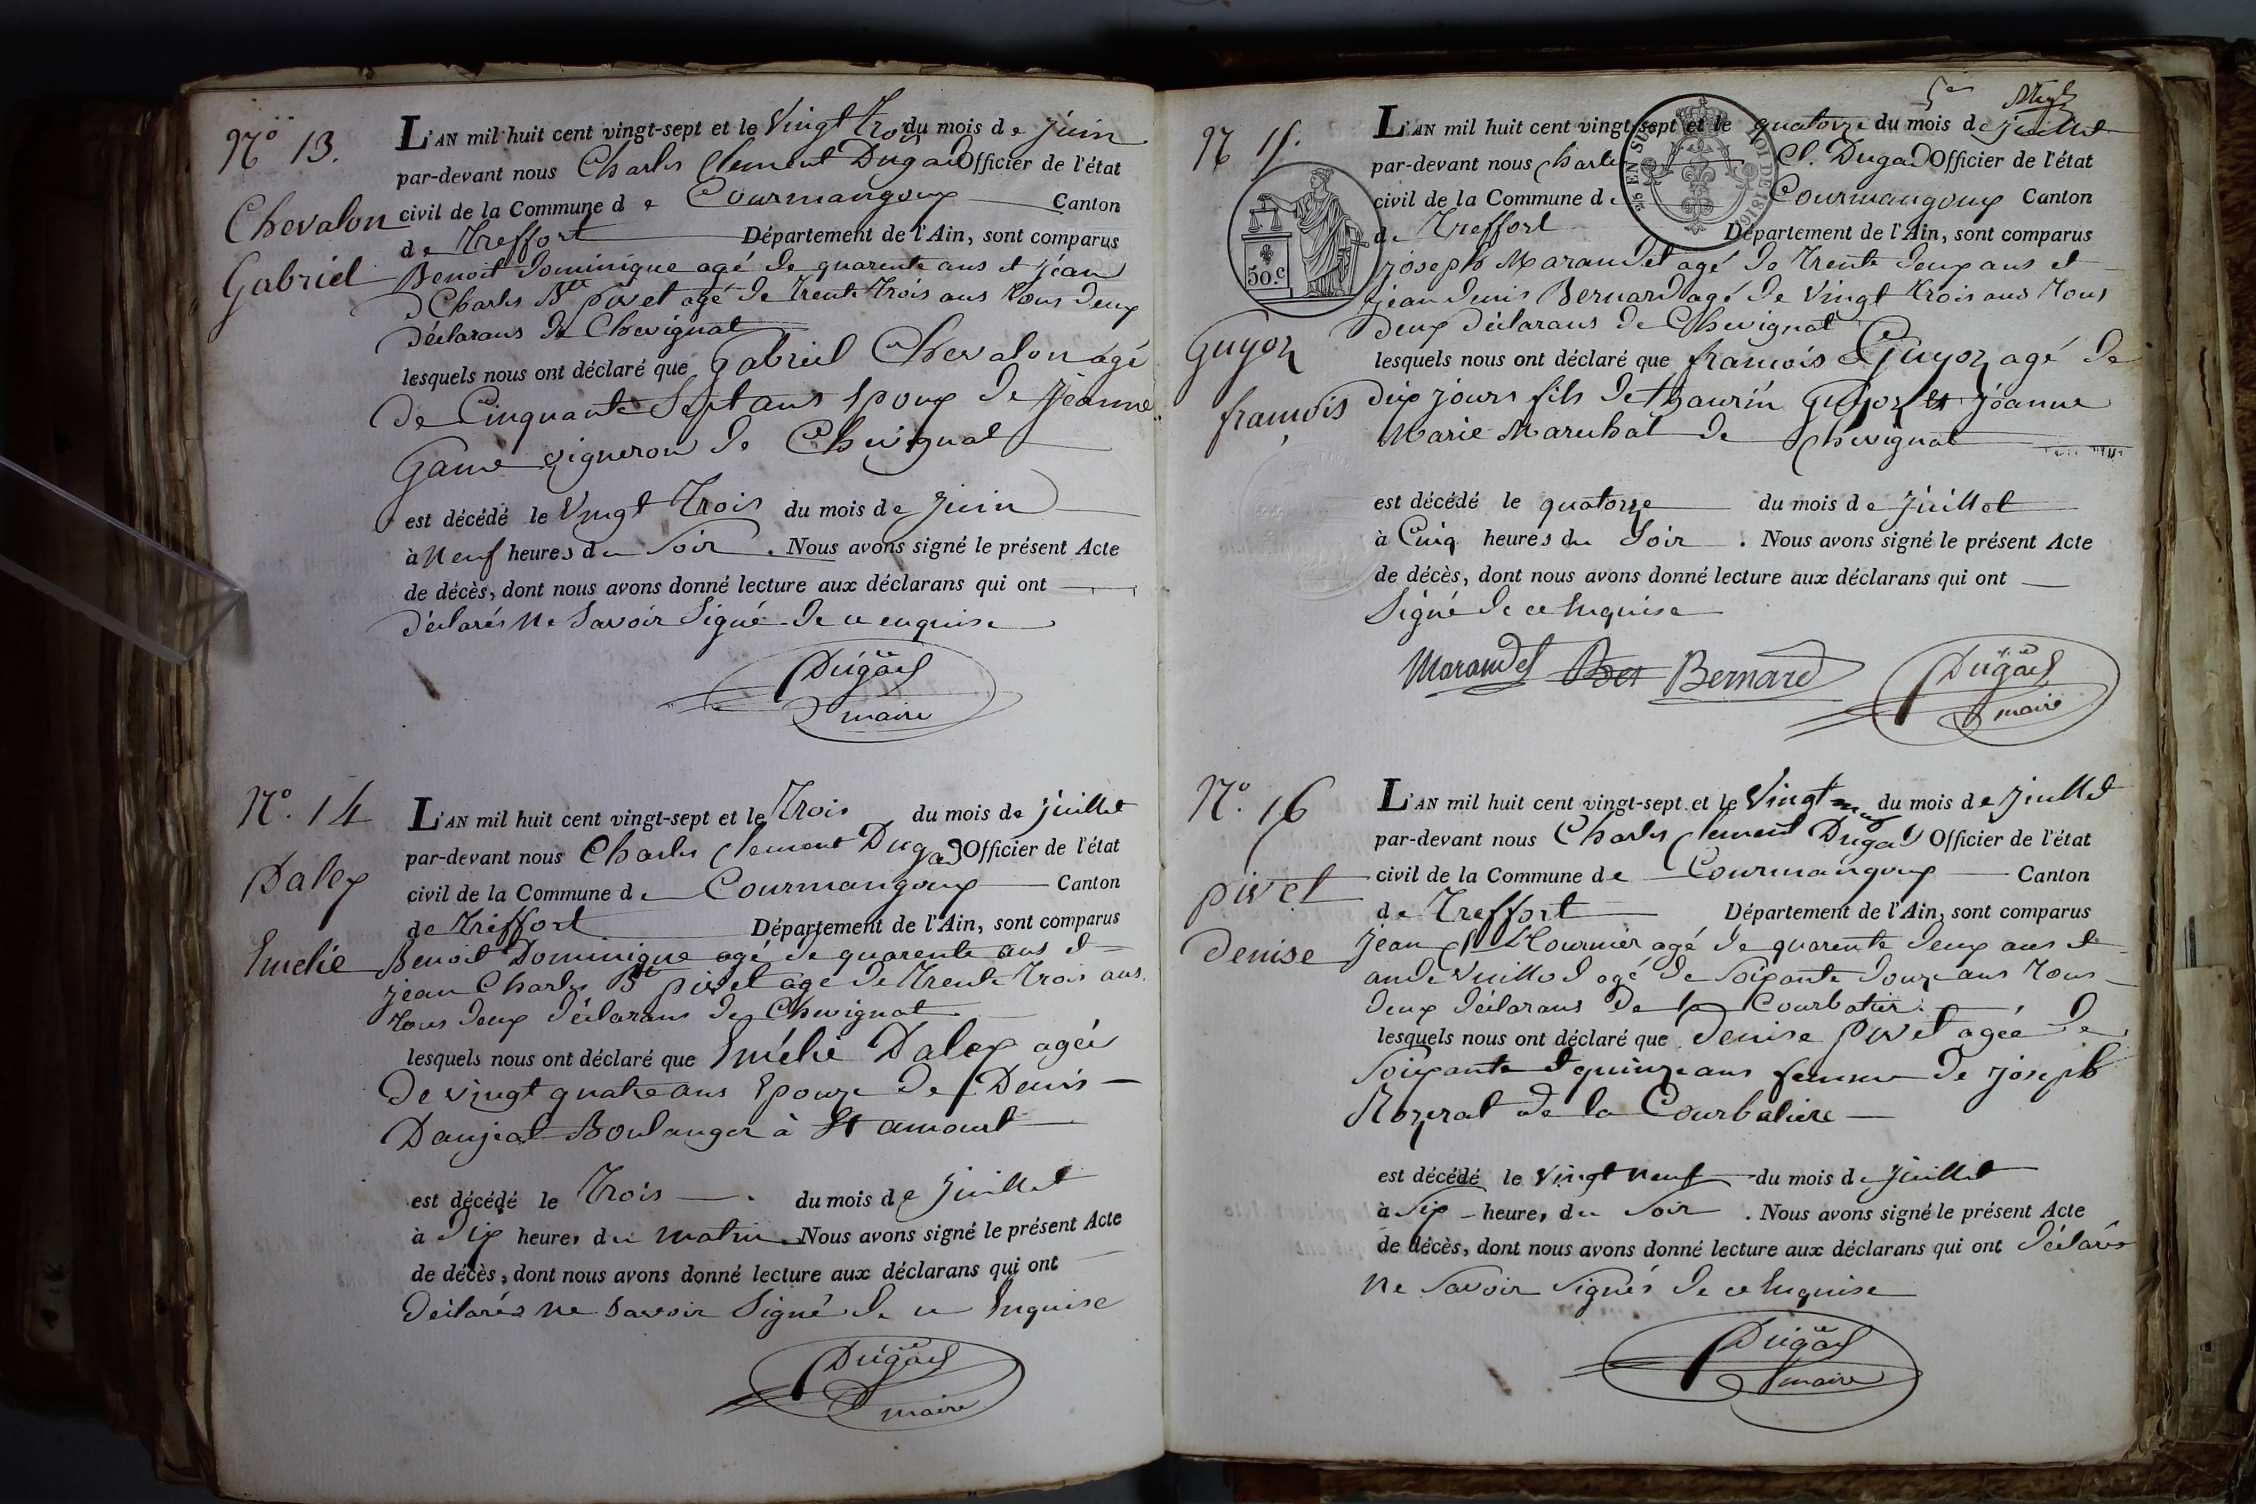 N.º 13.
Chevalon
Gabriel
L'AN mil huit cent vingt-sept et le Vingt Trois du mois de juin
par-devant nous Charles Clement Dugad Officier de l'état
civil de la Commune de Courmangoux Canton
de Treffort Département de l'Ain, sont comparus
Benoit Dominique agé de quarente ans et jean
Charles Bte pivet agé de Trente Trois ans Tous deux
déclarans de Chevignat
lesquels nous ont déclaré que Gabriel Chevalon agé
de Cinquante Sept ans Epoux de jeanne
Game vigneron de Chevignat
est décédé le Vingt Trois du mois de juin
à Neuf heures du Soir. Nous avons signé le présent Acte
de décès, dont nous avons donné lecture aux déclarans qui ont
déclarés Ne Savoir Signé de ce enquise
Dugad
maire
N.º 14
Dalex
Emelie
L'AN mil huit cent vingt-sept et le Trois du mois de juillet
par-devant nous Charles Clement Dugad Officier de l'état
civil de la Commune de Courmangoux Canton
de Treffort Département de l'Ain, sont comparus
Benoit Dominique agé de quarente ans et
jean Charles Bte pivet agé de Trente Trois ans
Tous deux déclarans de Chevignat
lesquels nous ont déclaré que Emélie Dalex agée
de vingt quatre ans Epouze de Denis
Danjeat Boulanger à St amour
est décédé le Trois du mois de juillet
à dix heures du matin. Nous avons signé le présent Acte
de décès, dont nous avons donné lecture aux déclarans qui ont
déclarés ne Savoir Signé de ce Enquise
Dugad
maire
5e
N 15.
50.c
Guyon
francois
L'AN mil huit cent vingt-sept et le quatorze du mois de juillet
par-devant nous Charles Cl. Dugad Officier de l'état
civil de la Commune de Courmangoux Canton
de Treffort Département de l'Ain, sont comparus
EN SUS LOI DE 1816
joseph Marandet agé de Trente deux ans et
jean denis Bernard agé de Vingt Trois ans Tous
deux déclarans de Chevignat
lesquels nous ont déclaré que francois Guyon agé de
dix jours fils de Thaurin Guyon et jéanne
Marie Marechal de Chevignat
est décédé le quatorze du mois de juillet
à Cinq heures du Soir. Nous avons signé le présent Acte
de décès, dont nous avons donné lecture aux déclarans qui ont
Signé de ce Enquise
Marandet Bernard Dugad
maire
N.º 16
pivet
Denise
L'AN mil huit cent vingt-sept et le Vingt neuf du mois de juillet
par-devant nous Charles Clement Dugad Officier de l'état
civil de la Commune de Courmangoux Canton
de Treffort Département de l'Ain, sont comparus
jean agé de quarente deux ans et
andé Vuillod agé de Soixante douze ans Tous
deux déclarans de la Courbatier
lesquels nous ont déclaré que denise Pivet agée de
Soixante et quinze ans femme de joseph
Rozerat de la Courbatiere
est décédé le Vingt Neuf du mois de juillet
à Six heures du Soir. Nous avons signé le présent Acte
de décès, dont nous avons donné lecture aux déclarans qui ont déclarés
Ne Savoir Signés de ce Enquise
Dugad
maire